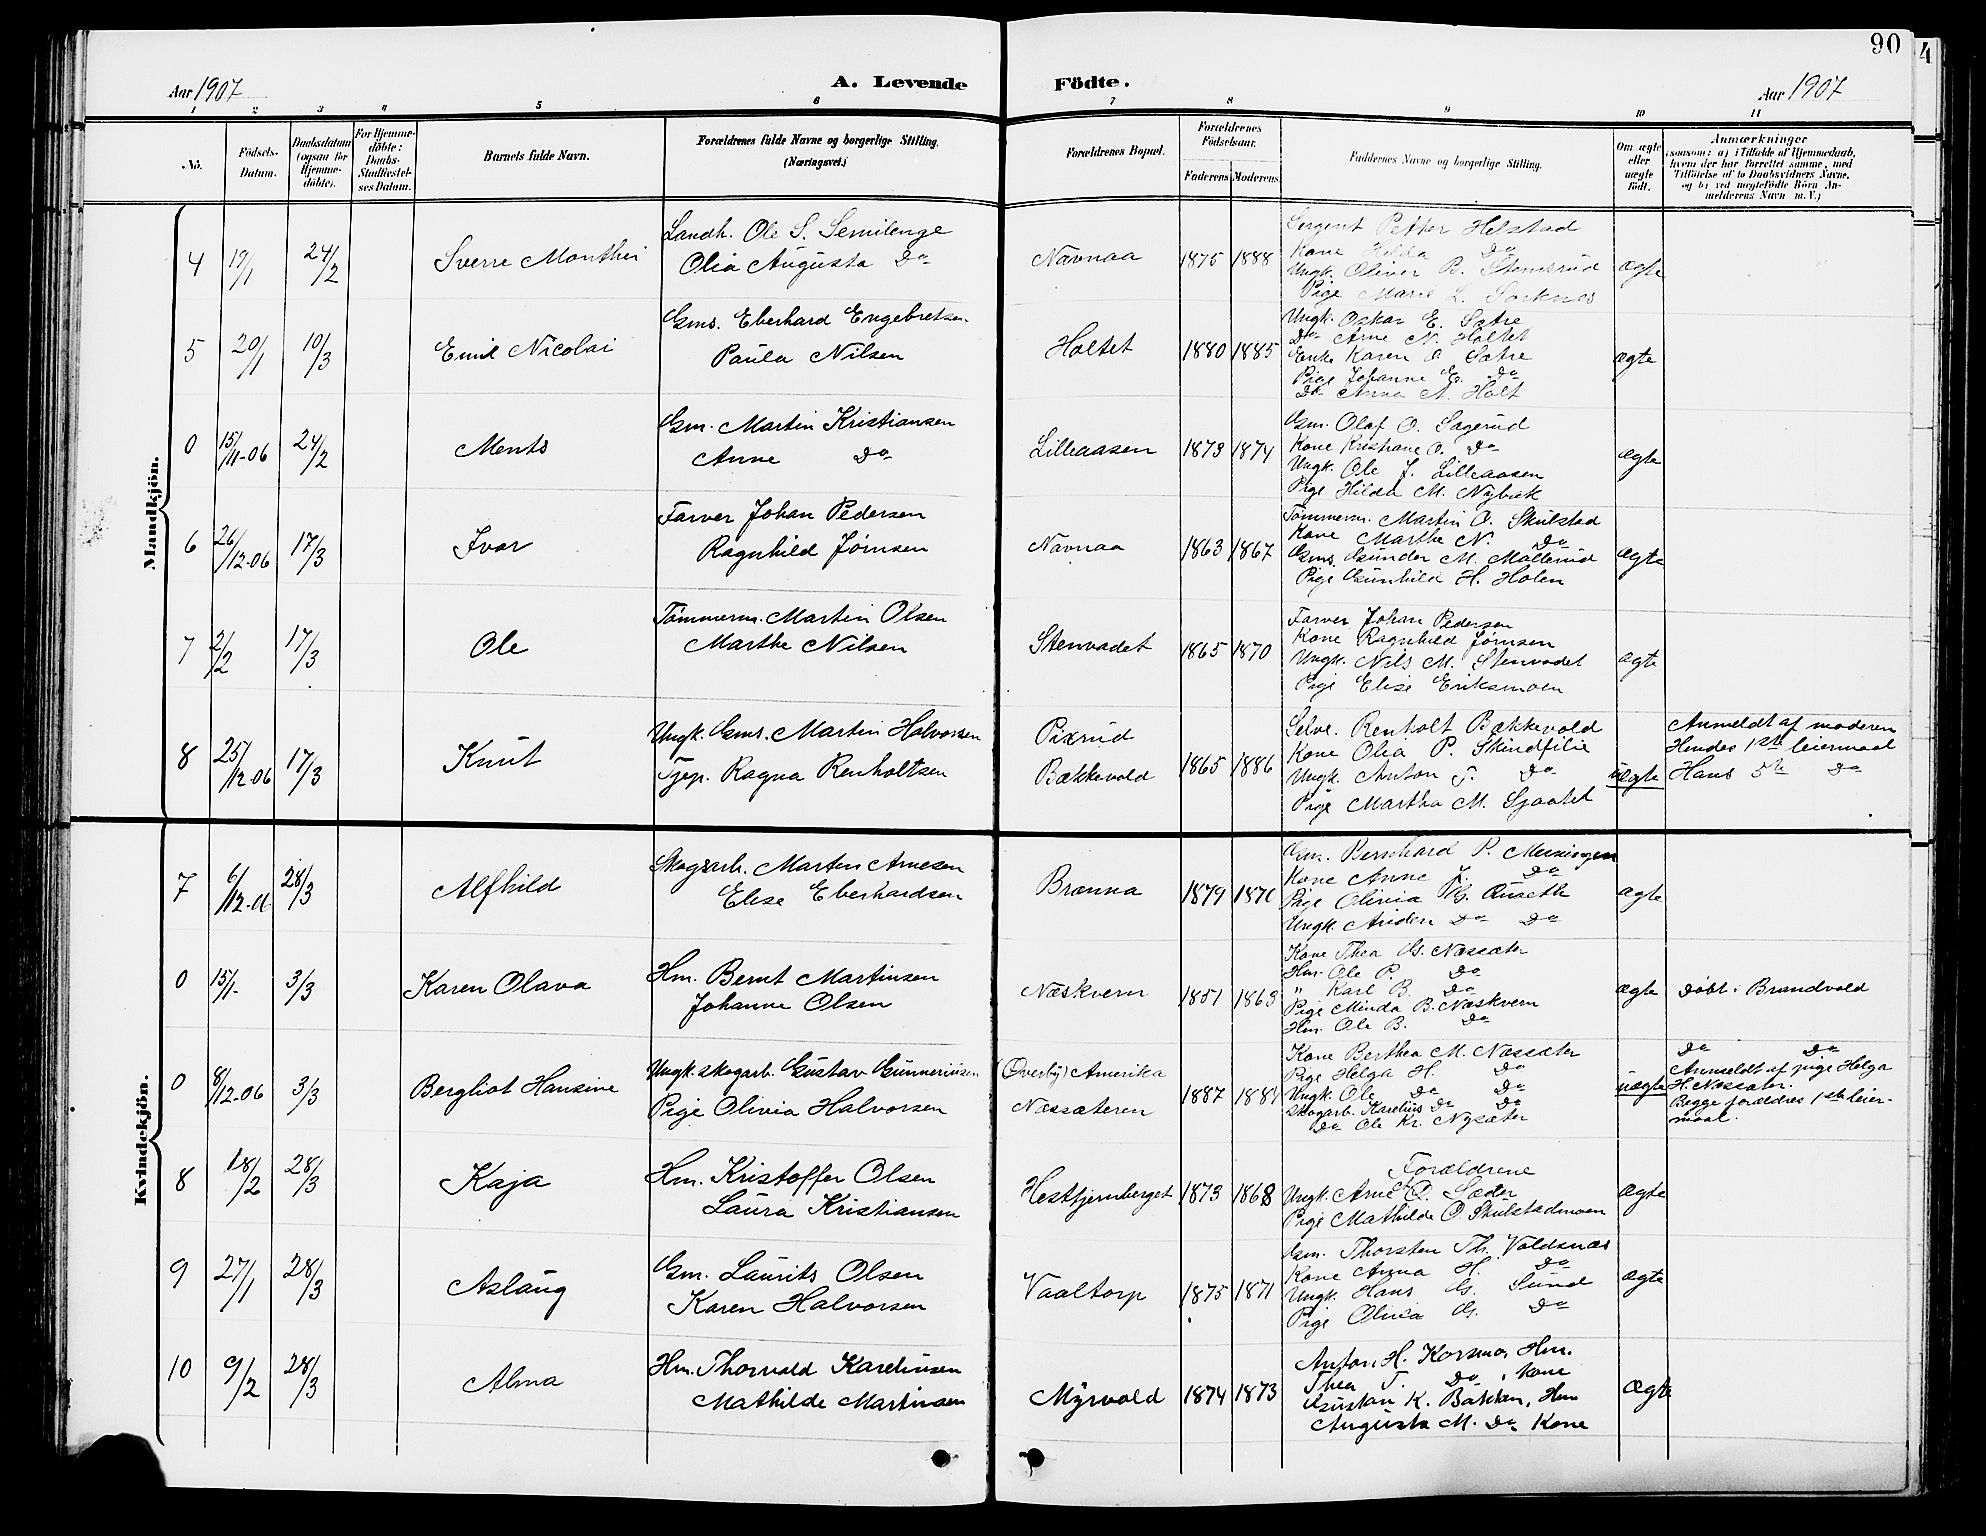 90
4
Aar 1907
A. Levende Födte.
Aar 1907
1 2 3 4 5 6 7 8 9 10 11
No.
Födsels-Datum.
Daabsdatum (ogsaa för Hjemme-döbte).
For Hjemme-döbte: Daabs-Stadfæstel-ses Datum.
Barnets fulde Navn.
Forældrenes fulde Navne og borgerlige Stilling. (Næringsvei.)
Forældrenes Bopæl.
Forældrenes Födselsaar.
Faderens Moderens
Faddernes Navne og borgerlige Stilling.
Om ægte eller uægte födt.
Anmærkninger
(saasom: a) i Tilfælde af Hjemmedaab, hvem der har forrettet samme, med Tilföielse af to Daabsvidners Navne, og b) ved uægtefödte Börn An-melderens Navn m. V.)
Mandkjön.
4 19/1 24/2 Sverre Monthei
Landh. Ole S. Semilenge
Olia Augusta Do
Navnaa 1875 1888
Sergent Petter Helstad
Kone Hilda Do
Ungk. Oliver B. Stemsrud
Pige Marie L. Sorknes
ægte
5 20/1 10/3 Emil Nicolai
Gms. Eberhard Engebretsen
Paula Nilsen
Holtet 1880 1885
Ungk. Oskar E. Sætre
Do Arne N. Holtet
Enke Karen O. Sætre
Pige Johanne E. Do
Do Anna A. Holt
ægte
0 15/11-06 24/2 Ments
Gm. Martin Kristiansen
Anne Do
Lilleaasen 1873 1874
Gm. Olaf O. Sagerud
Kone Kristiane O. Do
Ungk. Ole J. Lilleaasen
Pige Hilda M. Nybæk
ægte
6 26/12-06 17/3 Ivar
Farver Johan Pedersen
Ragnhild Jørnsen
Navnaa 1863 1867
Tømmerm. Martin O. Skulstad
Kone Marthe N. Do
Gms. Gunder M. Møllerud
Pige Gunhild H. Holen
ægte
7 2/2 17/3 Ole
Tømmerm. Martin Olsen
Marthe Nilsen
Stenvadet 1865 1870
Farver Johan Pedersen
Kone Ragnhild Jørnsen
Ungk. Nils M. Stenvadet
Pige Elise Eriksmoen
ægte
8 25/12-06 17/3 Knut
Ungk. Gms. Martin Halvorsen
Tjep. Ragna Renholtsen
Pixrud
Bækkevold 1865 1886
Selve. Renholt Bækkevold
Kone Olea P. Skindfilie
Ungk. Anton T. Do
Pige Martha M. Sjaatet
uægte
Anmeldt af moderen
Hendes 1ste leiermaal
Hans 5te Do
Kvindekjön.
7 6/12-06 28/3 Alfhild
Skogsarb. Martin Arnesen
Elise Eberhardsen
Brænna 1879 1870
Gm. Bernhard P. Meningen
Kone Anne J. Do
Pige Olivia G. Auseth
Ungk. Anders Do Do
ægte
0 15/1- 3/3 Karen Olava
Hm. Bernt Martinsen
Johanne Olsen
Næskvern 1851 1863
Kone Thea G. Næssæter
Hm. Ole P. Do
" Karl B. Do
Pige Minda B. Næskvern
Hm. Ole B. Do
ægte
Døbt i Brandvold
0 8/12-06 3/3 Bergliot Hansine
Ungk. skogarb. Gustav Gunneriusen
Pige Olivia Halvorsen
(Overby) Amerika
Næssæteren 1887
Kone Berthea M. Næssæter
Pige Helga H. Do
Ungk. Ole Do Do
Skogarb. Karelius Do Do
Do Ole Kr. Nysæter
uægte
Do Do
Anmeldt af pige Helga
H. Næssæter.
Begge forældres 1ste leier-
maal.
8 18/2 28/3 Kaja
Hm. Kristoffer Olsen
Laura Kristiansen
Hestkjernberget 1873 1868
Forældrene
Ungk. Arne O. Sæter
Pige Mathilde O. Skulstadmoen
Ægte
9 27/1 28/3 Aslaug
Gm. Laurits Olsen
Karen Halvorsen
Vaaltorp 1875 1871
Gm. Thorsten Th. Voldsnæs
Kone Anna H. Do
Ungk. Hans G. Sund
Pige Olivia G. Do
Ægte
10 9/2 28/3 Alma
Hm. Thorvald Kareliusen
Mathilde Martinsen
Myrvold 1874 1873
Anton H. Kornmo, Hm.
Thea T. Do, Kone
Gustav K. Bakken, Hm
Augusta M. Do Kone
Ægte